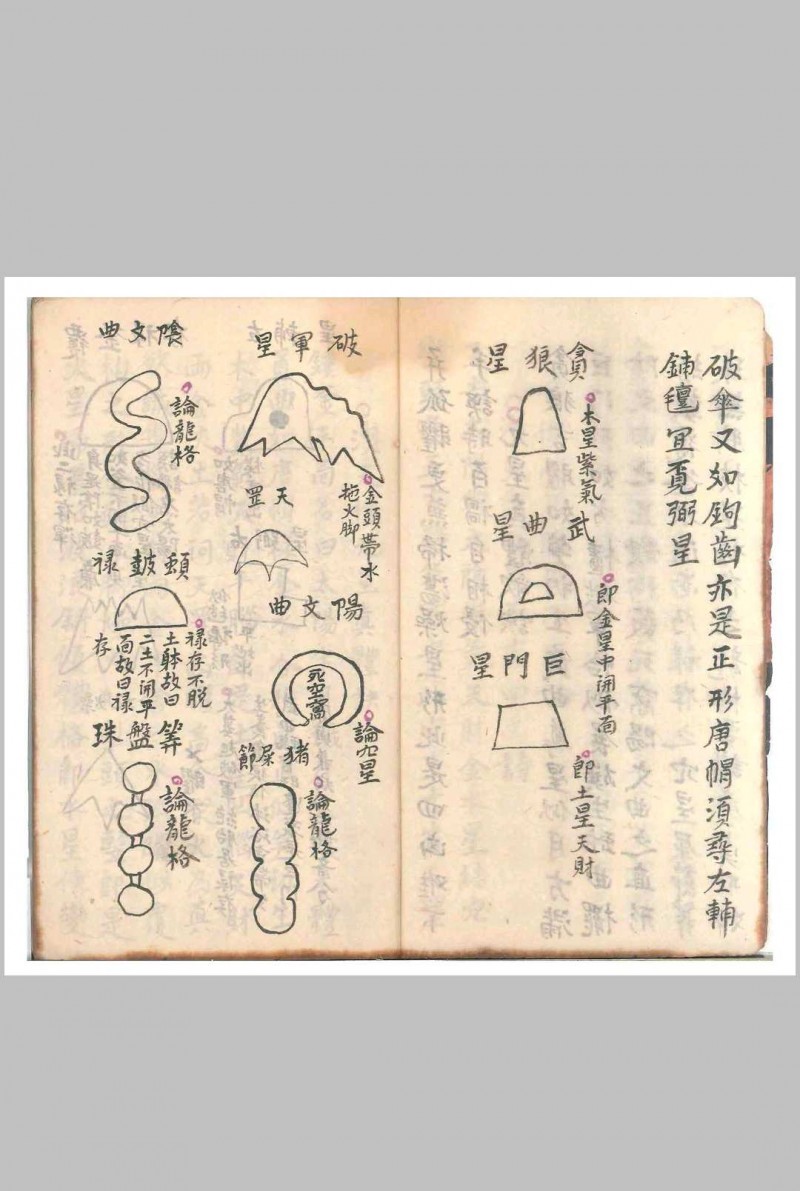 破傘又如鉤齒亦是正形唐帽須尋左輔
鋪氊宜覔弼星
貪狼星
木星紫氣
武曲星
即金星中開平面
巨門星
即土星天財
破軍星
金頭帶水
拖火脚
天罡
陽文曲
死空窩
論九星
猪屎節
論龍格
陰文曲
論龍格
鼓祿
祿存不脱
土躰故曰
二土不開平
面故曰祿
存
筭盤珠
論龍格